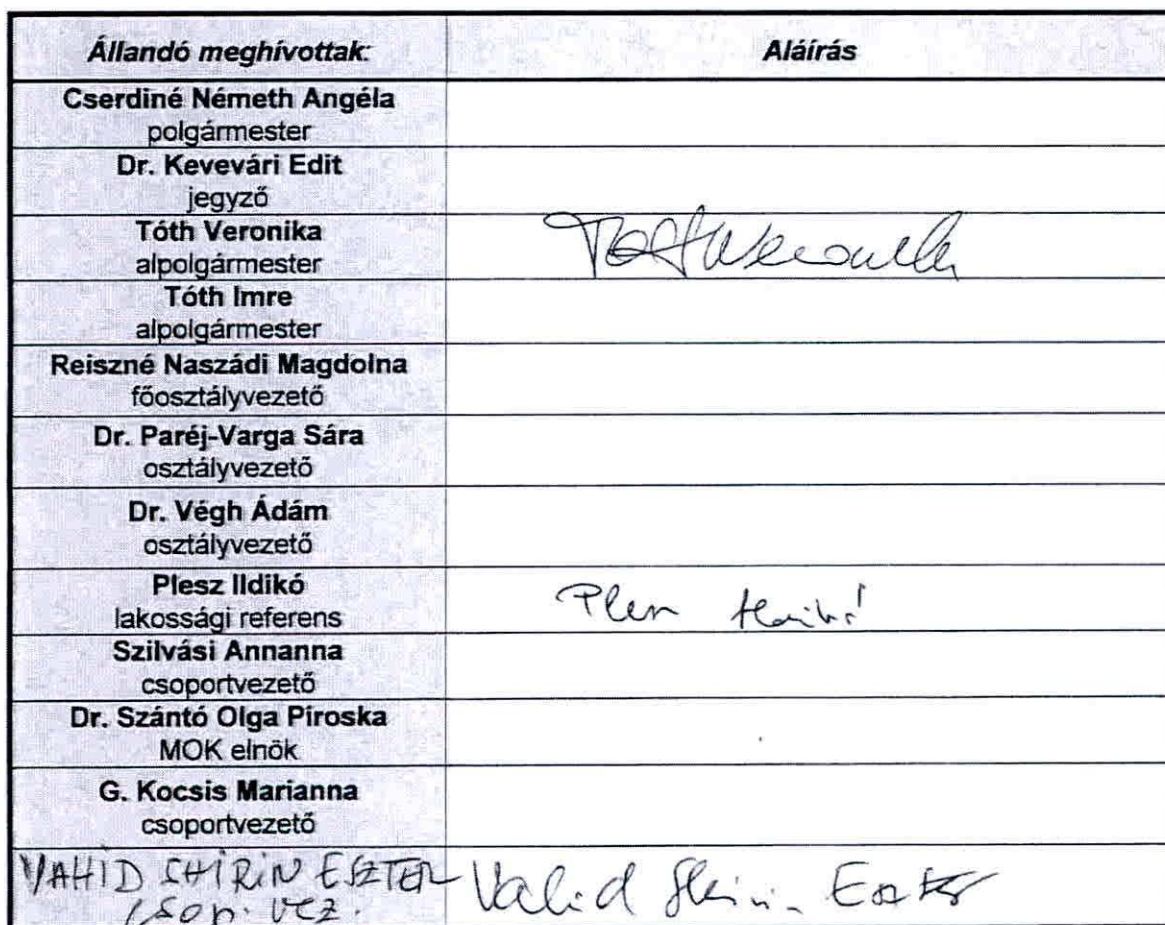 Állandó meghívottak: Aláírás
Cserdiné Németh Angéla
polgármester
Dr. Kevevári Edit
jegyző
Tóth Veronika
alpolgármester
Tóth Imre
alpolgármester
Reiszné Naszádi Magdolna
főosztályvezető
Dr. Paréj-Varga Sára
osztályvezető
Dr. Végh Ádám
osztályvezető
Plesz Ildikó
lakossági referens
Szilvási Annanna
csoportvezető
Dr. Szántó Olga Piroska
MOK elnök
G. Kocsis Marianna
csoportvezető
VAHID SHIRIN ESZTER Vahid Shirin Eszter
csop. vez.